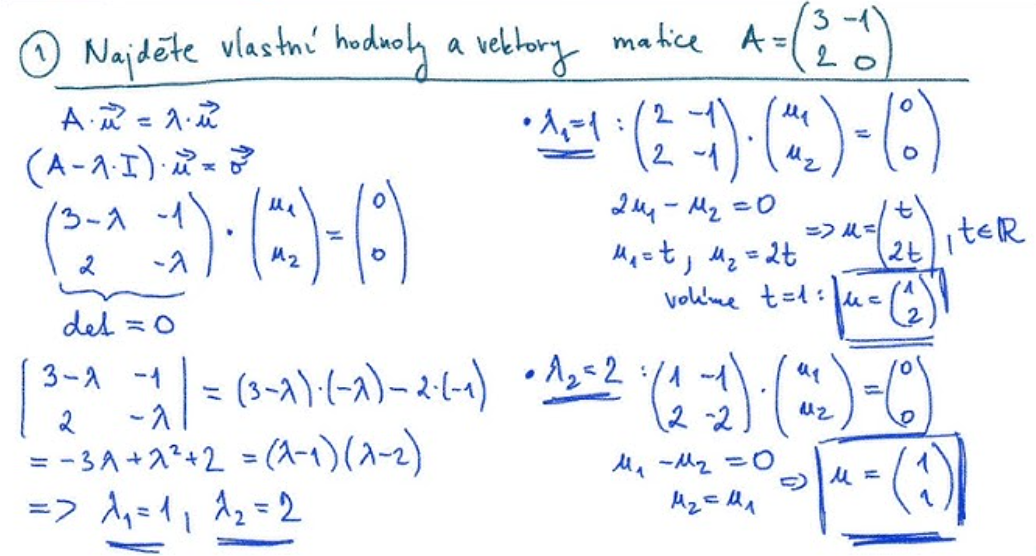 ① Najděte vlastní hodnoty a vektory matice A = (3 -1; 2 0)
A·u⃗ = λ·u⃗
(A-λ·I)·u⃗ = o⃗
(3-λ -1; 2 -λ)·(u₁; u₂) = (0; 0)
det = 0
|3-λ -1; 2 -λ| = (3-λ)·(-λ) - 2·(-1)
= -3λ + λ² + 2 = (λ-1)(λ-2)
=> λ₁=1, λ₂=2
• λ₁=1 : (2 -1; 2 -1)·(u₁; u₂) = (0; 0)
2u₁ - u₂ = 0
u₁=t, u₂=2t => u=(t; 2t), t∈ℝ
volíme t=1 : u=(1; 2)
• λ₂=2 : (1 -1; 2 -2)·(u₁; u₂) = (0; 0)
u₁ - u₂ = 0 => u = (1; 1)
u₂ = u₁